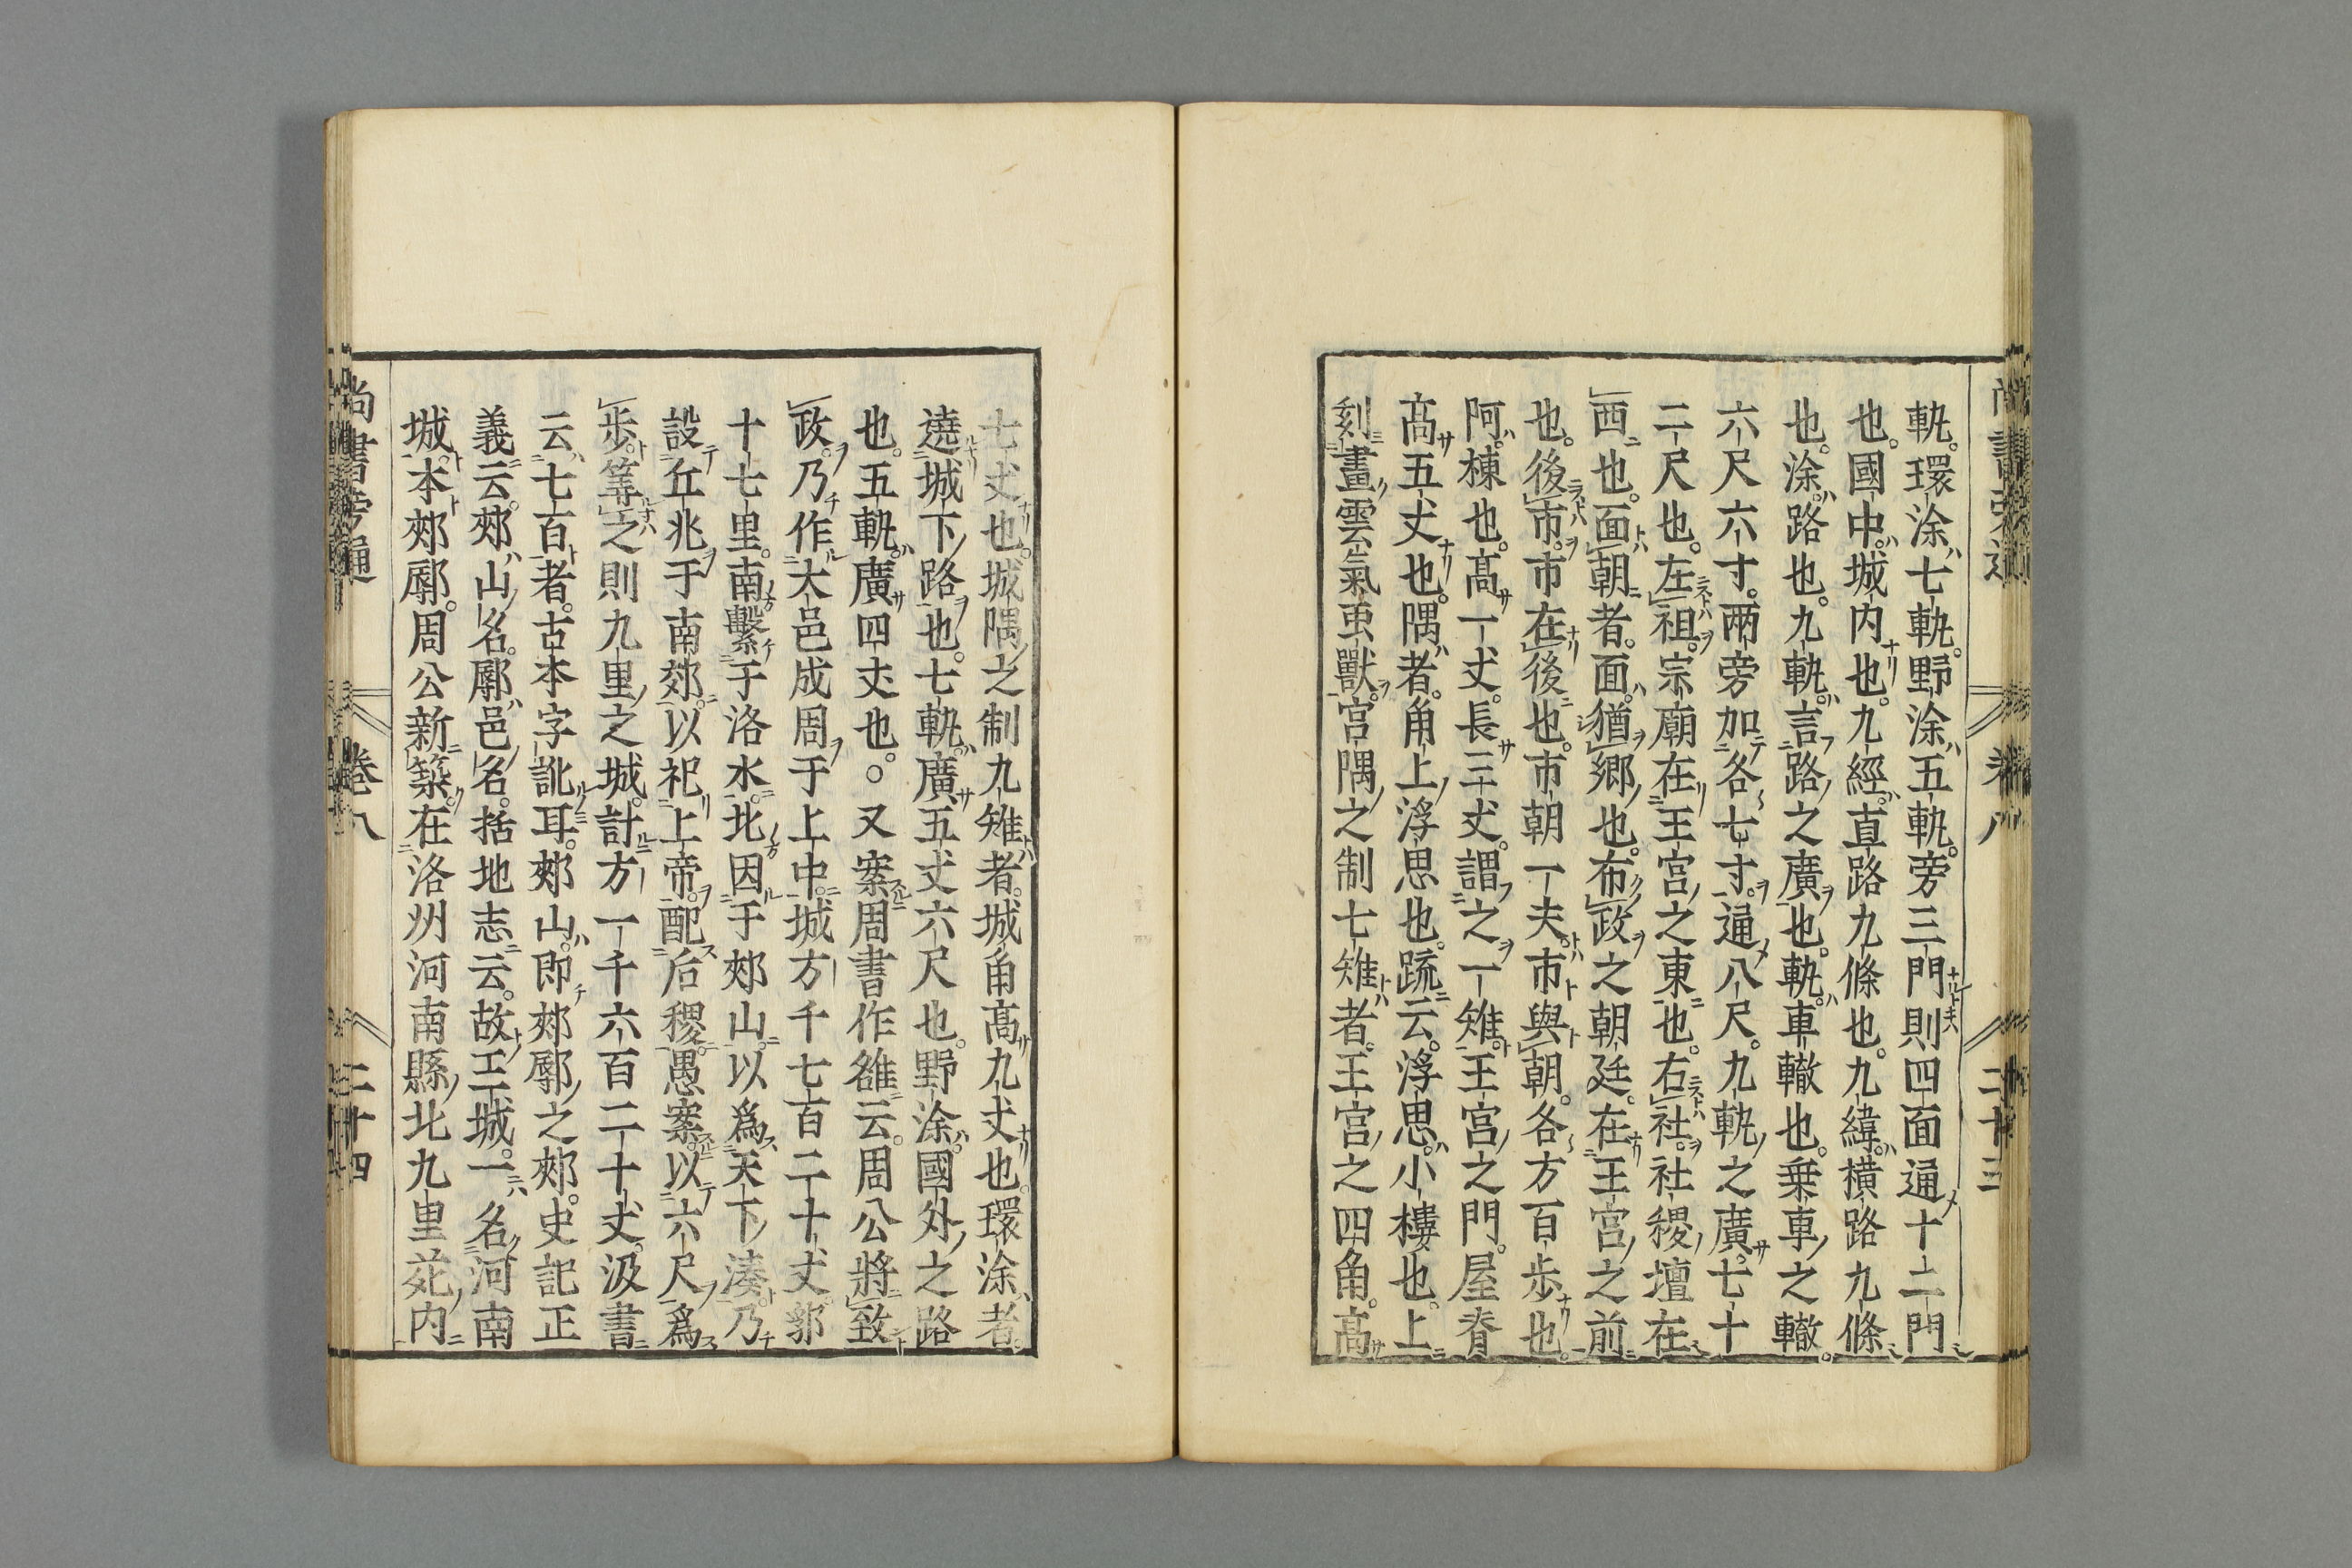 軌環涂七軌野涂五軌旁三門則四面通十二門
也國中城内也九經直路九條也九緯横路九條
也涂路也九軌言路之廣也軌車轍也乗車之轍
六尺六寸两旁加各七寸通八尺九軌之廣七十
二尺也左祖宗廟在王宮之東也右社社稷壇在
西也面朝者面猶郷也布政之朝廷在王宮之前
也後市市在後也市朝一夫市與朝各方百歩也
阿棟也髙一丈長三丈謂之一雉王宮之門屋脊
髙五丈也隅者角上浮思也疏云浮思小樓也上
刻畫雲氣䖝獸宮隅之制七雉者王宮之四角髙
尚書旁通 卷八 二十三
七丈也城隅之制九雉者城角髙九丈也環涂者
遶城下路也七軌廣五丈六尺也野涂國外之路
也五軌廣四丈也○又案周書作雒云周公將致
政乃作大邑成周于上中城方千七百二十丈郛
十七里南繫于洛水北因于郟山以爲天下湊乃
設丘兆于南郊以祀上帝配后稷愚案以六尺爲
歩等之則九里之城計方一千六百二十丈汲書
云七百者古本字訛耳郟山即郟鄏之郟史記正
義云郟山名鄏邑名括地志云故王城一名河南
城本郟鄏周公新築在洛州河南縣北九里苑内
尚書旁通 卷八 二十四